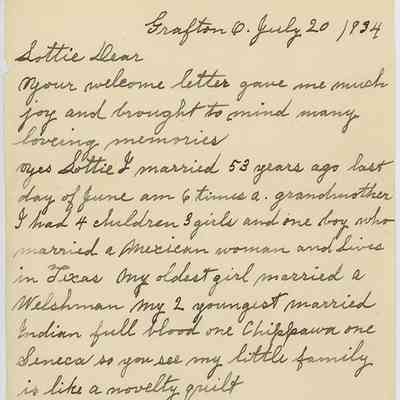 Grafton O. July 20 1934
Lottie Dear
Your welcome letter gave me much
joy and brought to mind many
loveing memories
Yes Lottie I married 53 years ago last
day of June am 6 times a. grandmother
I had 4 children 3 girls and one boy who
married a Mexican woman and lives
in Texas My oldest girl married a
Welshman My 2 youngest married
Indian full blood one Chippawa one
Seneca so you see my little family
is like a novelty quilt